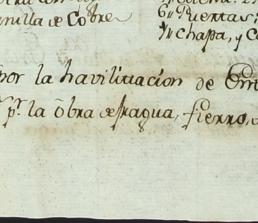 nilla de Cobre
Puertas;
chapa, y C
por la havilitacion de
pr. la obra de fragua, fierro,